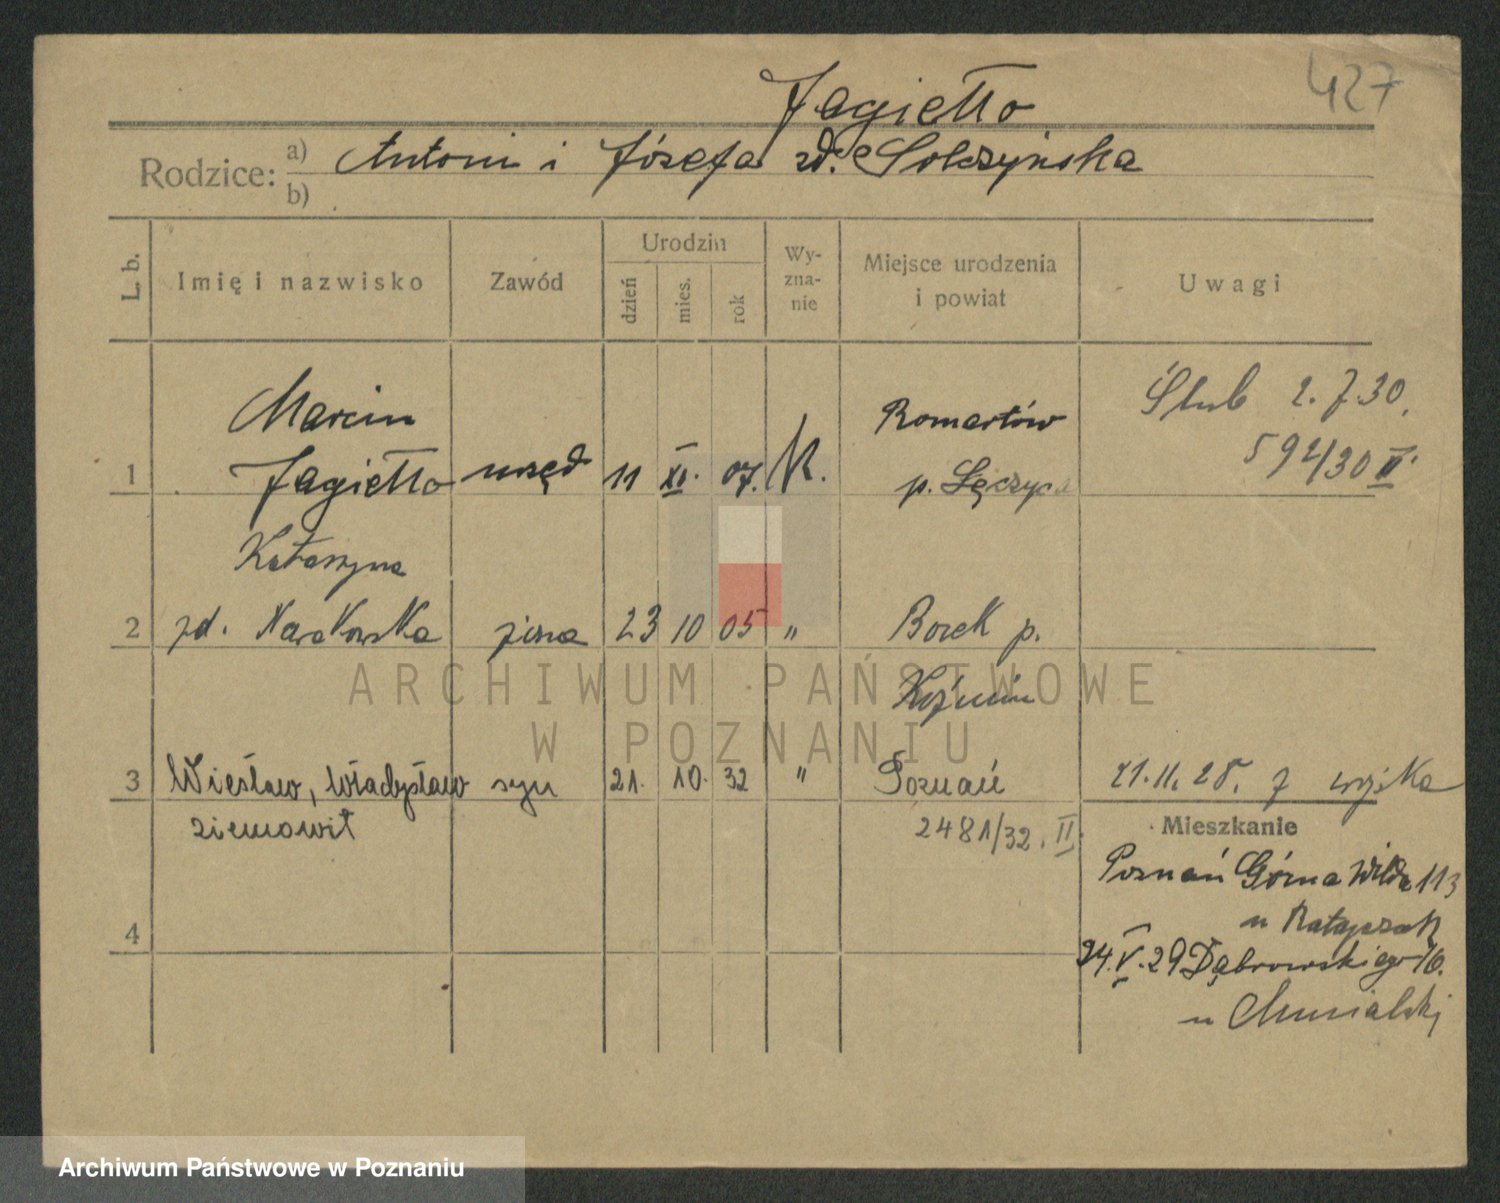 427
Jagiełło
Rodzice: a) Antoni i Józefa zd. Solczyńska
b)
L. b. Imię i nazwisko Zawód Urodzin dzień mies. rok Wy-zna-nie Miejsce urodzenia i powiat Uwagi
Marcin Romartów Ślub 2.7.30.
1 Jagiełło urzęd 11 XI. 07. K. p. Łęczyca 592/30 II.
Katarzyna
2 zd. żona 23 10 05 " Borek p.
Koźmin
3 Wiesław, Władysław syn 21. 10. 32 " Poznań 21.11.28. z wojska
ziemowit 2481/32. II.
Mieszkanie
Poznań Górna Wilda 113
u Ratajczak
4
24.V.29 Dąbrowskiego 16.
u
ARCHIWUM PAŃSTWOWE
W POZNANIU
Archiwum Państwowe w Poznaniu